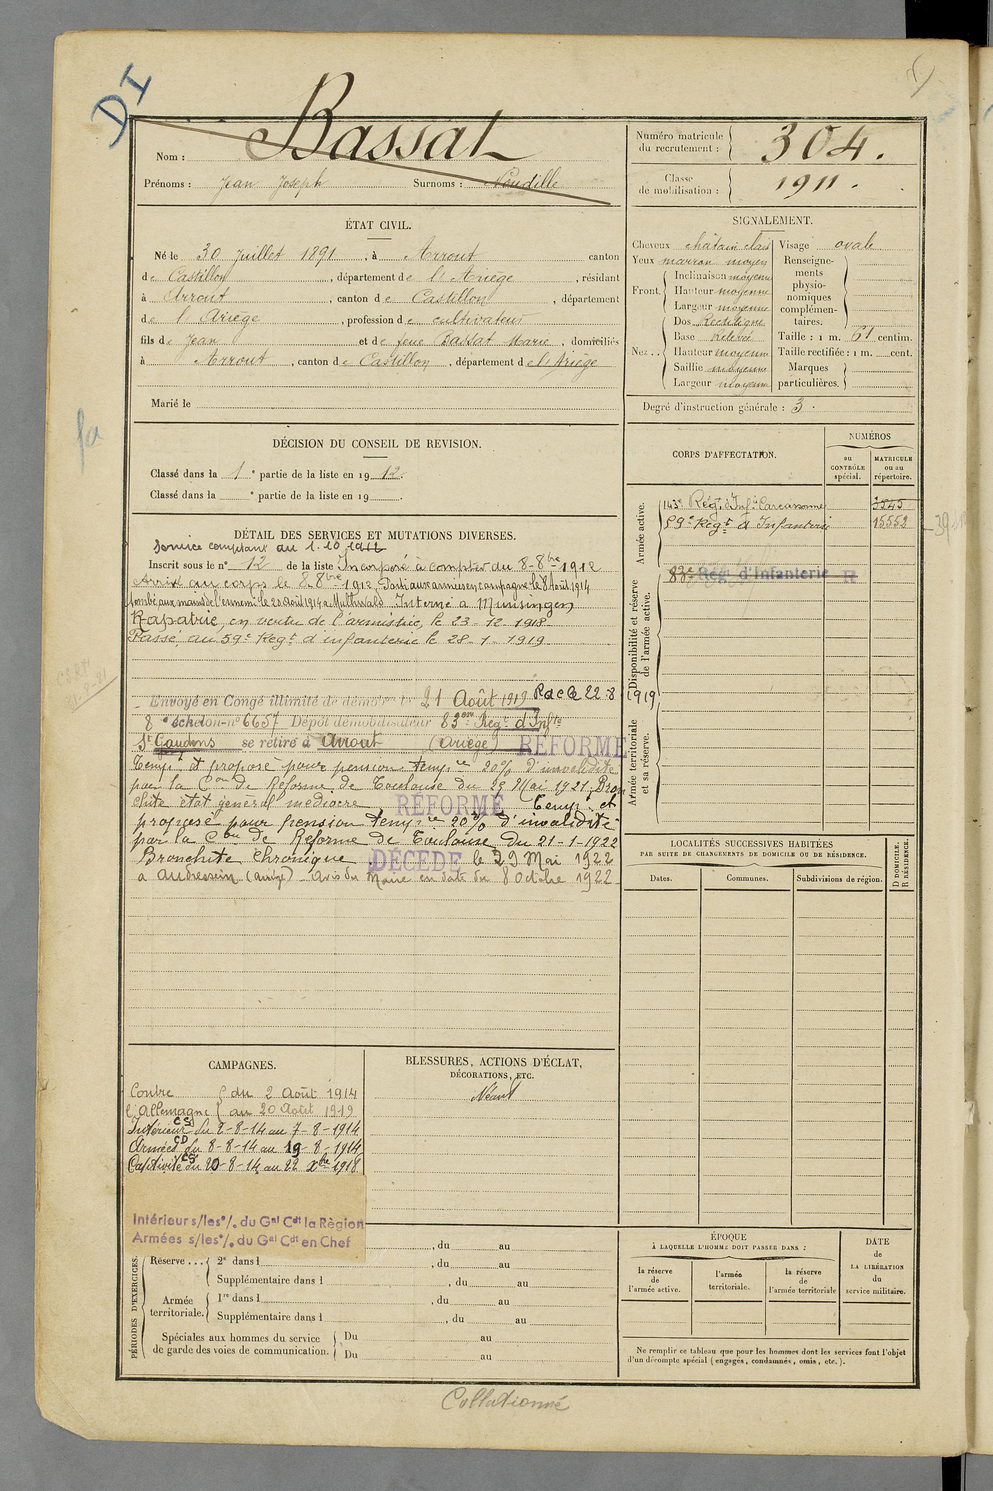 DI
Nom : Bassat
Prénoms : Jean Joseph Surnoms :
Numéro matricule du recrutement : 304.
Classe de mobilisation : 1911.
ÉTAT CIVIL.
Né le 30 Juillet 1891, à Arrout canton
de Castillon, département de l'Ariège, résidant
à Arrout, canton de Castillon, département
de l'Ariège, profession de cultivateur
fils de Jean et de feue Bassat Marie, domiciliés
à Arrout, canton de Castillon, département de l'Ariège
Marié le
SIGNALEMENT.
Cheveux châtain clair Visage ovale
Yeux marron moyen
Front. Inclinaison moyenne
Hauteur moyenne
Largeur moyenne
Nez .. Dos Rectiligne
Base Relevée
Hauteur moyenne
Saillie moyenne
Largeur moyenne
Renseignements physionomiques complémentaires.
Taille : 1 m. 61 centim.
Taille rectifiée : 1 m. cent.
Marques particulières.
Degré d'instruction générale : 3.
DÉCISION DU CONSEIL DE REVISION.
Classé dans la 1e partie de la liste en 1912.
Classé dans la e partie de la liste en 19
CORPS D'AFFECTATION.
NUMÉROS
au CONTRÔLE spécial.
MATRICULE ou au répertoire.
Armée active.
143e Régt d'Infie Carcassonne 3245
59e Régt d'Infanterie 15552
Disponibilité et réserve de l'armée active.
83e Rég. d'Infanterie R
Armée territoriale et sa réserve.
DÉTAIL DES SERVICES ET MUTATIONS DIVERSES.
Service comptant du 1.10.1912
Inscrit sous le n° 12 de la liste Incorporé à compter du 8-8bre 1912
Arrivé au corps le 8 8bre 1912. Parti aux armées en campagne le 8 Août 1914
Tombé aux mains de l'ennemi le 20 Août 1914 à Multwald Interné à Münsingen
Rapatrié, en vertu de l'armistice, le 23-12-1918.
Passé au 59e Régt d'infanterie le 28-1-1919.
Envoyé en Congé illimité de démobon le 21 Août 1919 22-8 1919
8e échelon n° 6657 Dépôt démobilisateur 83eme Régt d'Infie
St Gaudens se retire à Arrout (Ariège) RÉFORMÉ
Tempt et proposé pour pension tempre 20% d'invalidité
par la Con de Réforme de Toulouse du 29 Mai 1921. Bron
chite état général médiocre. RÉFORMÉ Temp. et
proposé pour pension tempre 20% d'invalidité
par la Con de Réforme de Toulouse du 21-1-1922
Bronchite Chronique. DÉCÉDÉ le 29 Mai 1922
à Audressein (Ariège) avis du Maire en date du 8 Octbre 1922
LOCALITÉS SUCCESSIVES HABITÉES
PAR SUITE DE CHANGEMENTS DE DOMICILE OU DE RÉSIDENCE.
Dates. Communes. Subdivisions de région. D DOMICILE. R RÉSIDENCE.
CAMPAGNES.
Contre l'Allemagne du 2 Août 1914
au 20 Août 1919
Intérieur CS du 2-8-14 au 7-8-1914
Armées CD du 8-8-14 au 19-8-1914
Captivité du 20-8-14 au 22 Xbre 1918
Intérieur s/les °/. du Gal Cdt la Règion
Armées s/les °/. du Gal Cdt en Chef
BLESSURES, ACTIONS D'ÉCLAT,
DÉCORATIONS, ETC.
Néant
PÉRIODES D'EXERCICES.
, du au
Réserve ... 2e dans l , du au
Supplémentaire dans l , du au
Armée territoriale. 1re dans l , du au
Supplémentaire dans l , du au
Spéciales aux hommes du service de garde des voies de communication. Du au
Du au
ÉPOQUE
À LAQUELLE L'HOMME DOIT PASSER DANS :
la réserve de l'armée active.
l'armée territoriale.
la réserve de l'armée territoriale
DATE de LA LIBÉRATION du service militaire.
Ne remplir ce tableau que pour les hommes dont les services font l'objet
d'un décompte spécial (engagés, condamnés, omis, etc.).
Collationné